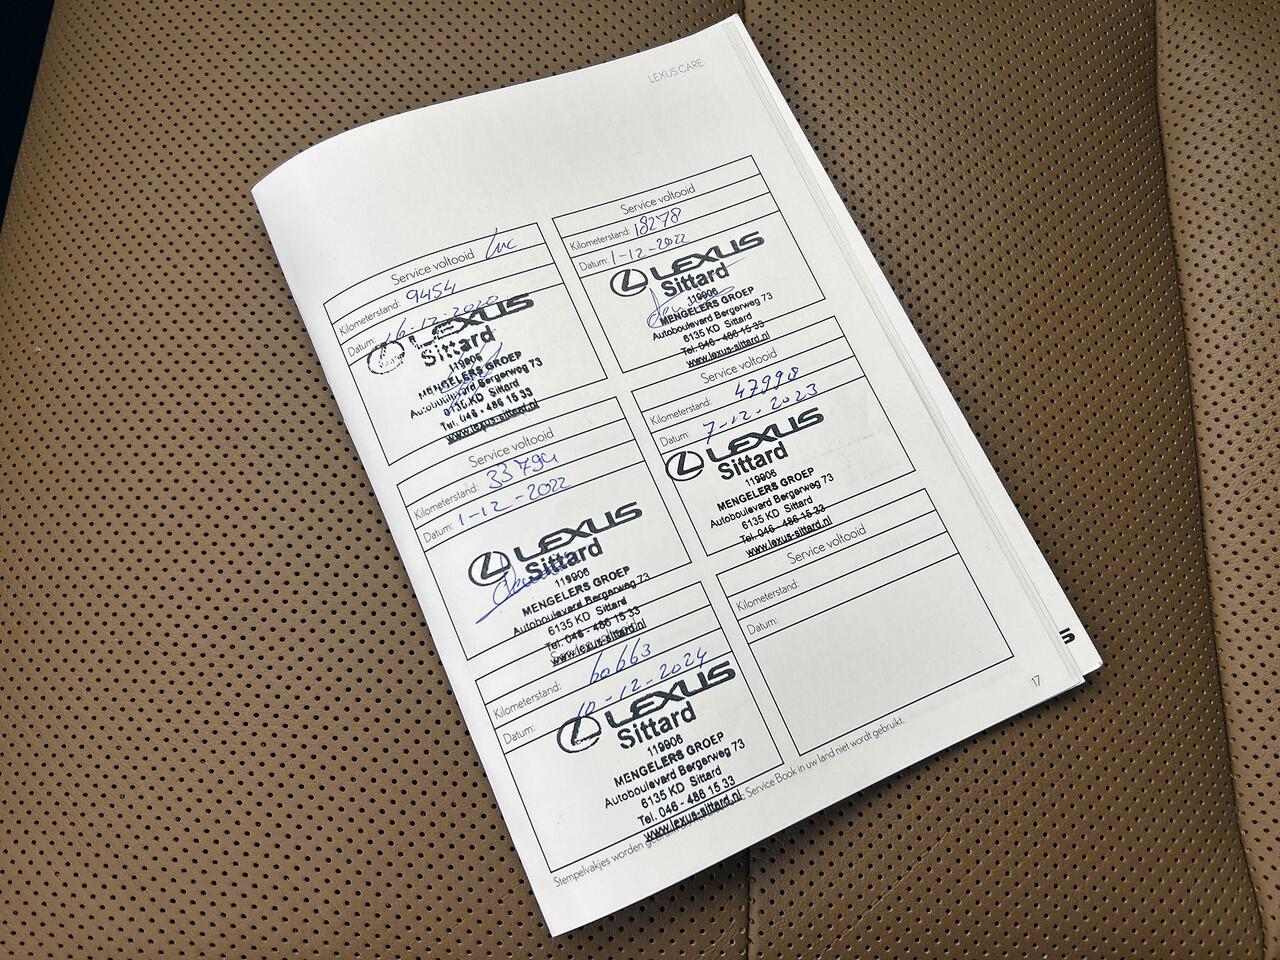 LEXUS CARE
Service voltooid Luc
Kilometerstand: 9454
Datum: 16-12-2020
LEXUS
Sittard
119906
MENGELERS GROEP
Autoboulevard Bergerweg 73
6135 KD Sittard
Tel. 046 - 486 15 33
www.lexus-sittard.nl
Service voltooid
Kilometerstand: 18278
Datum: 1-12-2022
LEXUS
Sittard
119906
MENGELERS GROEP
Autoboulevard Bergerweg 73
6135 KD Sittard
Tel. 046 - 486 15 33
www.lexus-sittard.nl
Service voltooid
Kilometerstand: 33794
Datum: 1-12-2022
LEXUS
Sittard
119906
MENGELERS GROEP
Autoboulevard Bergerweg 73
6135 KD Sittard
Tel. 046 - 486 15 33
www.lexus-sittard.nl
Service voltooid
Kilometerstand: 47998
Datum: 7-12-2023
LEXUS
Sittard
119906
MENGELERS GROEP
Autoboulevard Bergerweg 73
6135 KD Sittard
Tel. 046 - 486 15 33
www.lexus-sittard.nl
Kilometerstand: 60663
Datum: 10-12-2024
LEXUS
Sittard
119906
MENGELERS GROEP
Autoboulevard Bergerweg 73
6135 KD Sittard
Tel. 046 - 486 15 33
www.lexus-sittard.nl
Service voltooid
Kilometerstand:
Datum:
Stempelvakjes worden Service Book in uw land niet wordt gebruikt.
17